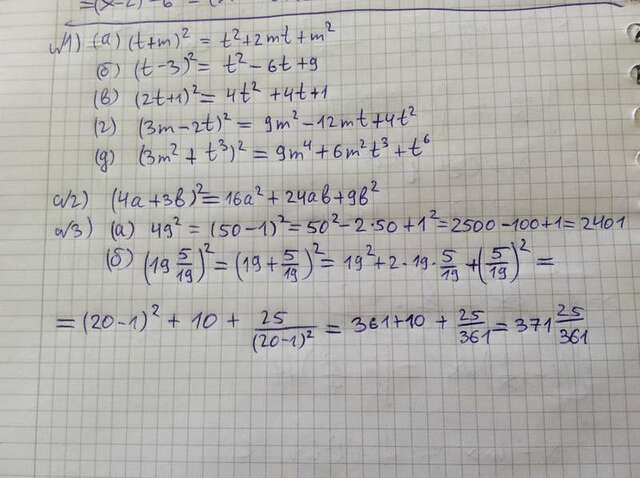 №1) (а) (t+m)² = t²+2mt+m²
(б) (t-3)² = t²-6t+9
(в) (2t+1)² = 4t²+4t+1
(г) (3m-2t)² = 9m²-12mt+4t²
(д) (3m²+t³)² = 9m⁴+6m²t³+t⁶
№2) (4a+3b)² = 16a²+24ab+9b²
№3) (а) 49² = (50-1)² = 50²-2·50+1² = 2500-100+1 = 2401
(б) (19 5/19)² = (19+5/19)² = 19²+2·19·5/19+(5/19)² =
= (20-1)² + 10 + 25/(20-1)² = 361+10+25/361 = 371 25/361